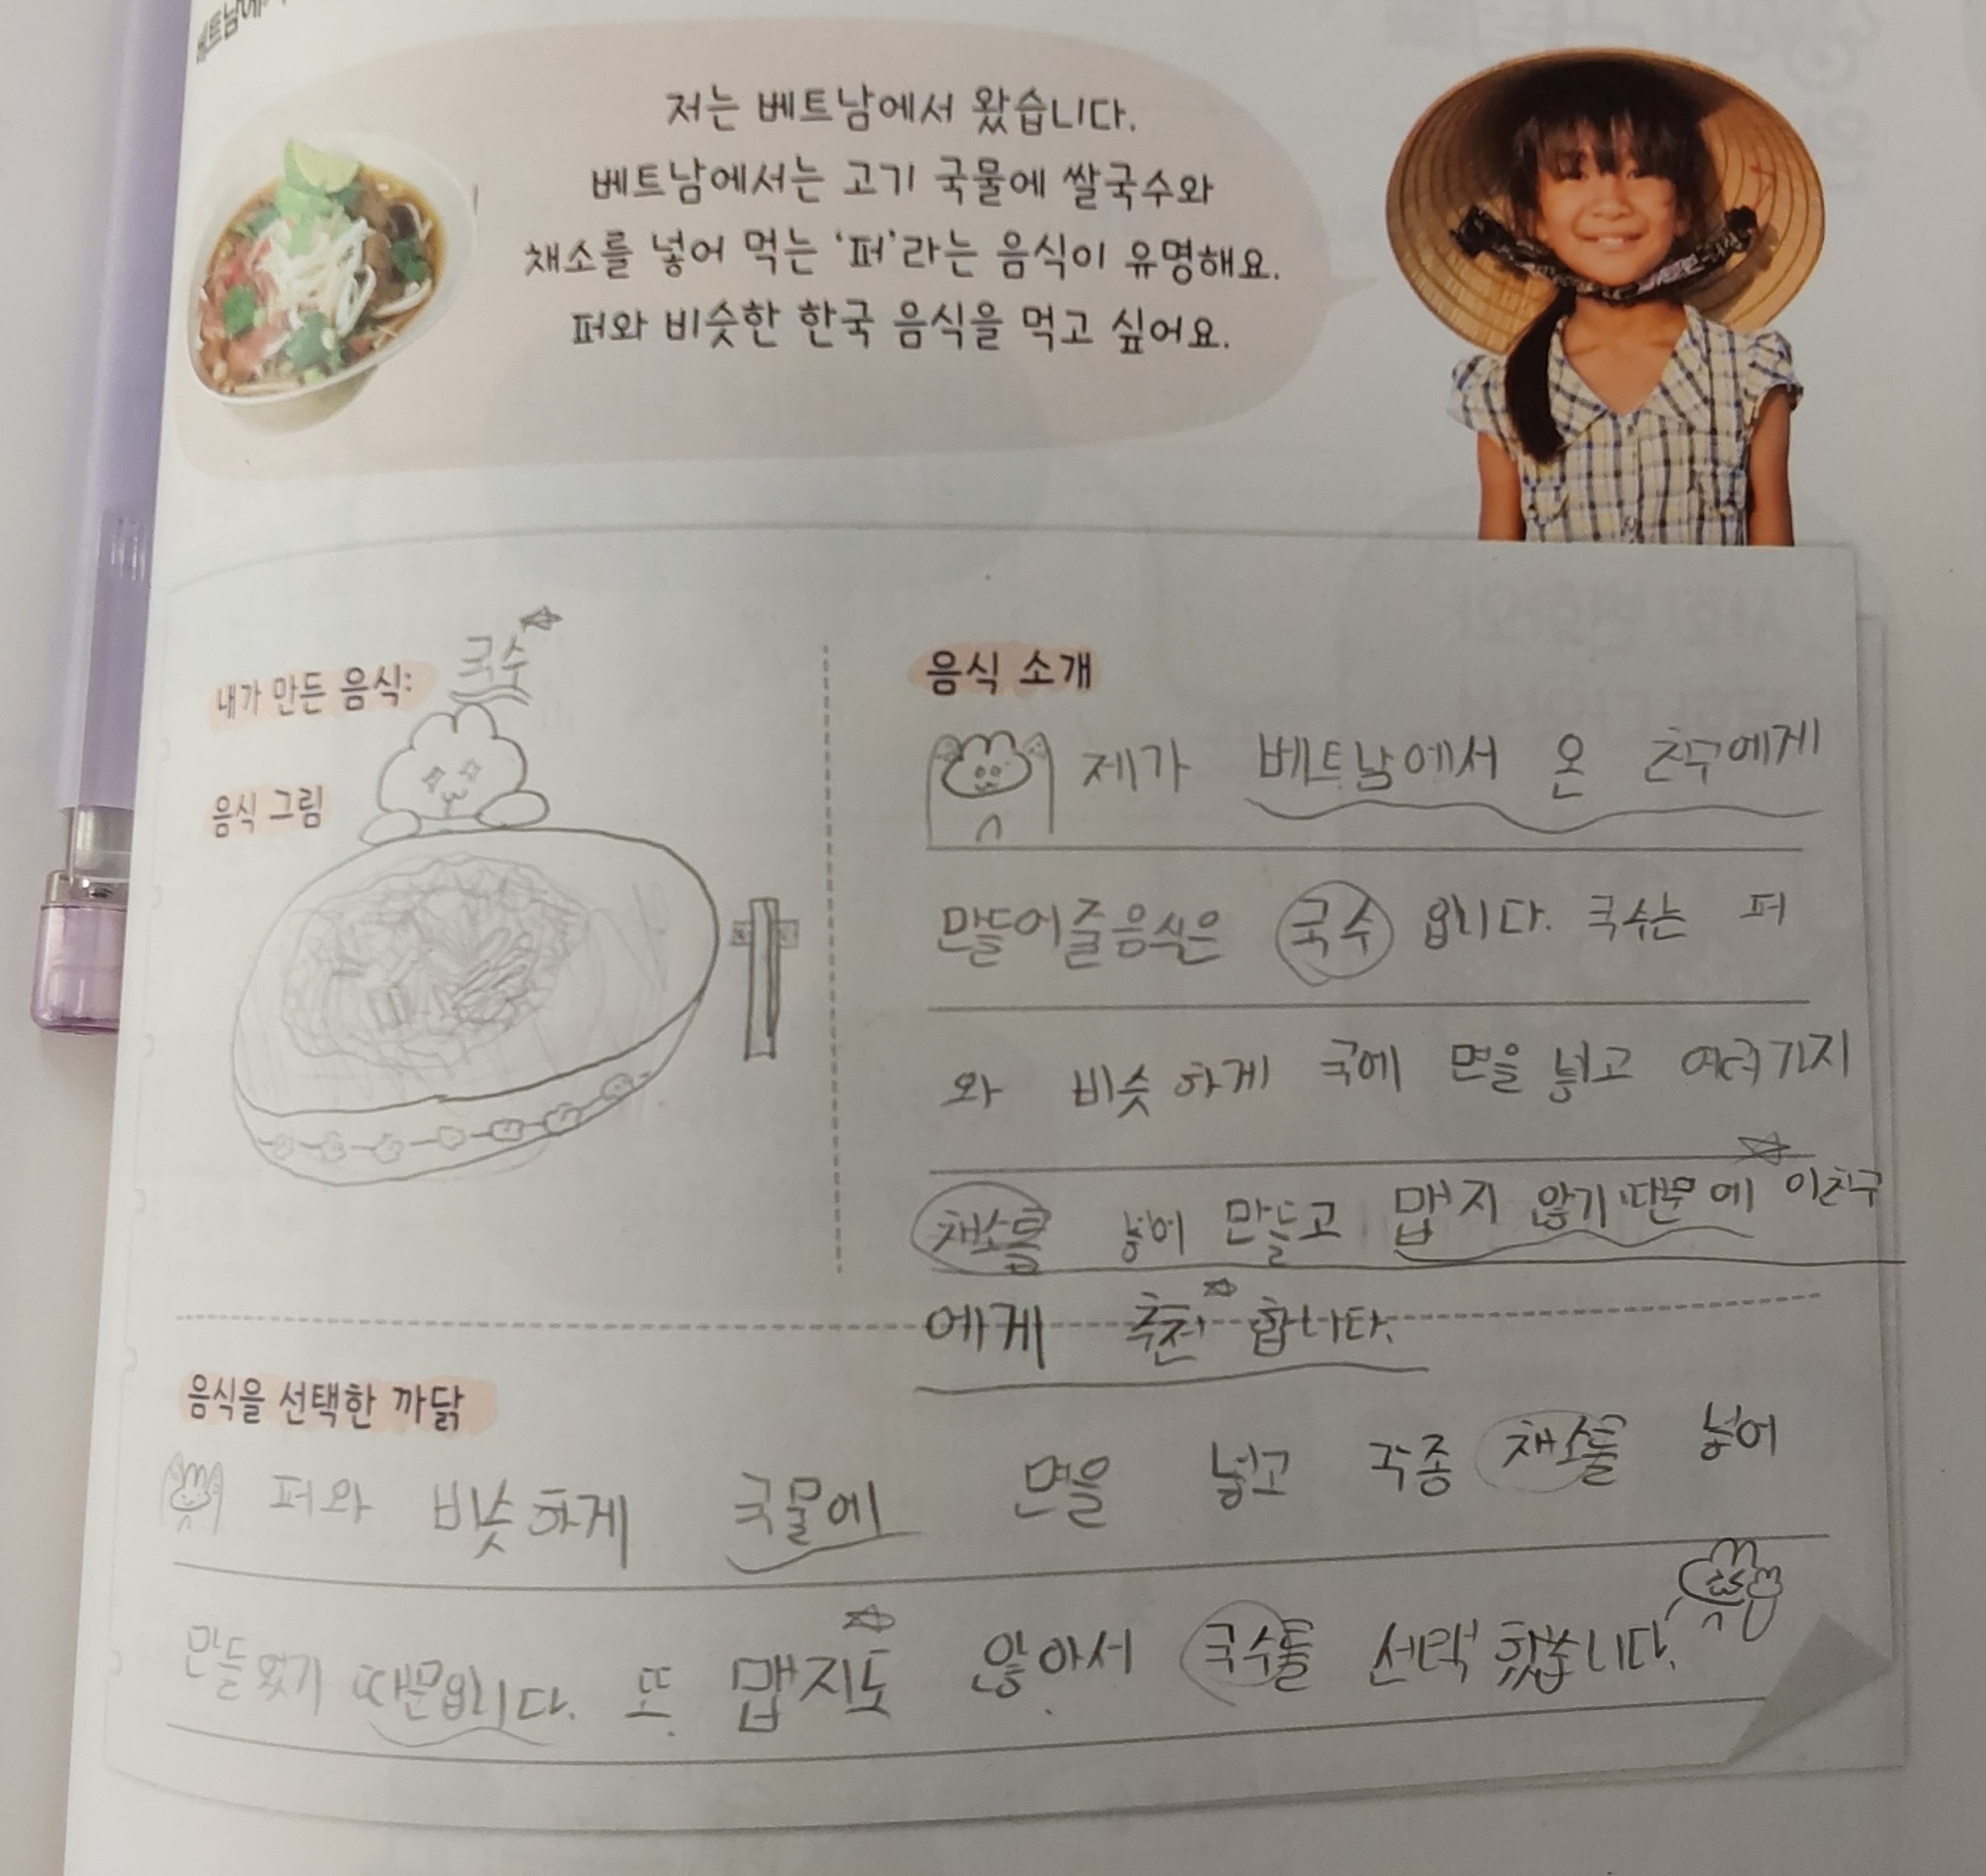 저는 베트남에서 왔습니다.
베트남에서는 고기 국물에 쌀국수와
채소를 넣어 먹는 ‘퍼’라는 음식이 유명해요.
퍼와 비슷한 한국 음식을 먹고 싶어요.
내가 만든 음식: 국수
음식 그림
음식 소개
제가 베트남에서 온 친구에게
만들어줄음식은 국수 입니다. 국수는 퍼
와 비슷하게 국에 면을 넣고 여러가지
채소를 넣어 만들고 맵지 않기 때문에 이친구
에게 추천 합니다.
음식을 선택한 까닭
퍼와 비슷하게 국물에 면을 넣고 각종 채소를 넣어
만들었기 때문입니다. 또 맵지도 않아서 국수를 선택했습니다.